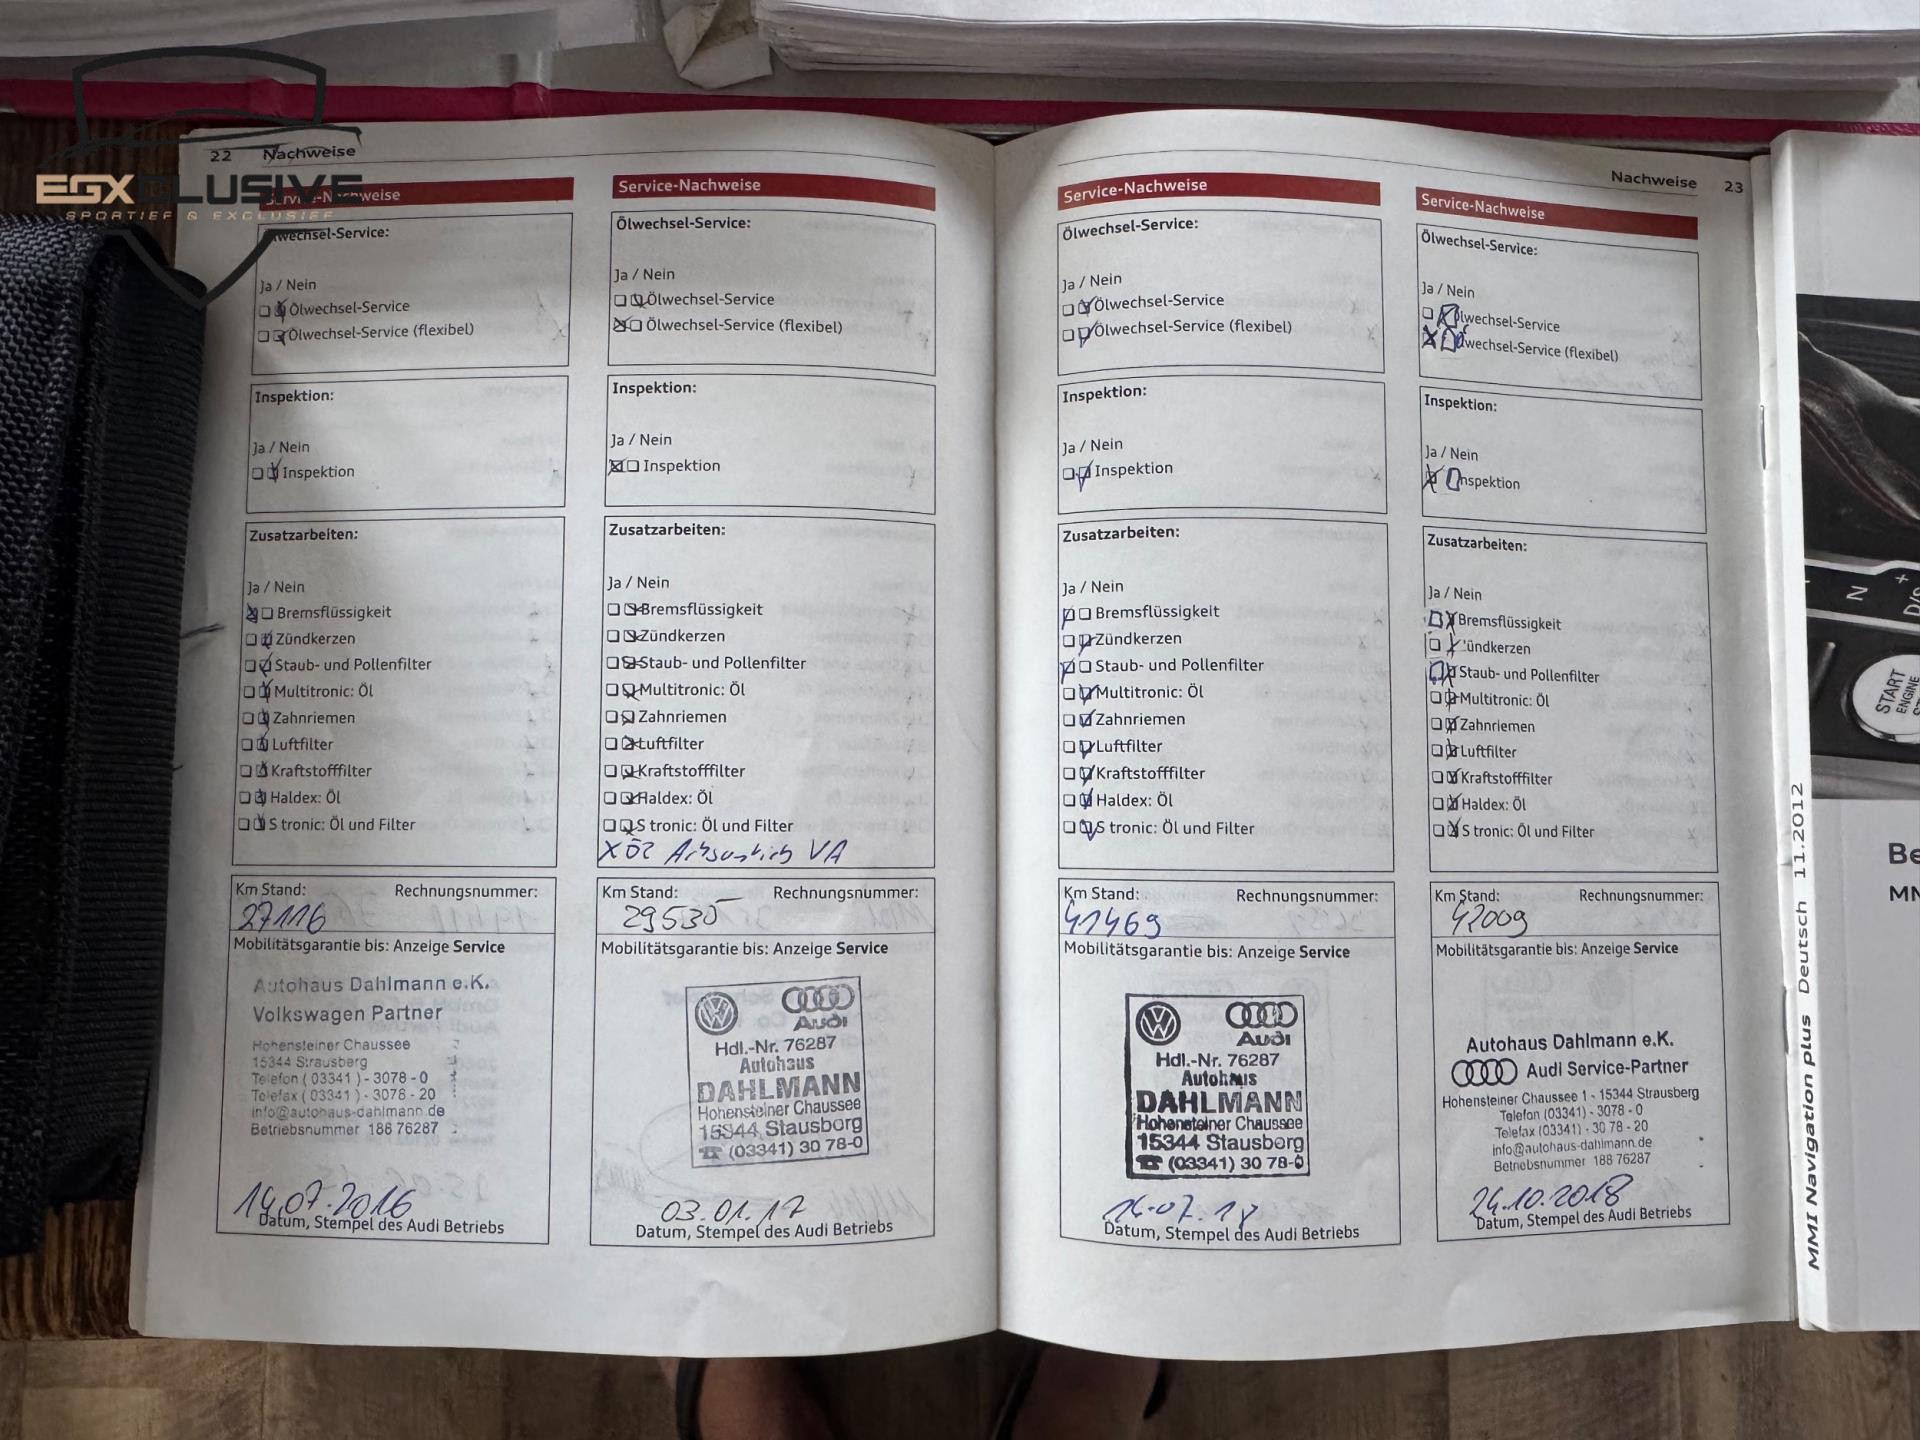 EGXCLUSIVE
SPORTIEF & EXCLUSIEF
22 Nachweise
Service-Nachweise
Ölwechsel-Service:
Ja / Nein
Ölwechsel-Service
Ölwechsel-Service (flexibel)
Inspektion:
Ja / Nein
Inspektion
Zusatzarbeiten:
Ja / Nein
Bremsflüssigkeit
Zündkerzen
Staub- und Pollenfilter
Multitronic: Öl
Zahnriemen
Luftfilter
Kraftstofffilter
Haldex: Öl
S tronic: Öl und Filter
Km Stand: Rechnungsnummer:
27116
Mobilitätsgarantie bis: Anzeige Service
Autohaus Dahlmann e.K.
Volkswagen Partner
Hohensteiner Chaussee
15344 Strausberg
Telefon (03341) - 3078 - 0
Telefax (03341) - 3078 - 20
info@autohaus-dahlmann.de
Betriebsnummer 188 76287
14.07.2016
Datum, Stempel des Audi Betriebs
Service-Nachweise
Ölwechsel-Service:
Ja / Nein
Ölwechsel-Service
Ölwechsel-Service (flexibel)
Inspektion:
Ja / Nein
Inspektion
Zusatzarbeiten:
Ja / Nein
Bremsflüssigkeit
Zündkerzen
Staub- und Pollenfilter
Multitronic: Öl
Zahnriemen
Luftfilter
Kraftstofffilter
Haldex: Öl
S tronic: Öl und Filter
VA
Km Stand: Rechnungsnummer:
29535
Mobilitätsgarantie bis: Anzeige Service
Audi
Hdl.-Nr. 76287
Autohaus
DAHLMANN
Hohensteiner Chaussee
15344 Stausberg
☎ (03341) 30 78-0
03.01.17
Datum, Stempel des Audi Betriebs
Nachweise 23
Service-Nachweise
Ölwechsel-Service:
Ja / Nein
Ölwechsel-Service
Ölwechsel-Service (flexibel)
Inspektion:
Ja / Nein
Inspektion
Zusatzarbeiten:
Ja / Nein
Bremsflüssigkeit
Zündkerzen
Staub- und Pollenfilter
Multitronic: Öl
Zahnriemen
Luftfilter
Kraftstofffilter
Haldex: Öl
S tronic: Öl und Filter
Km Stand: Rechnungsnummer:
41469
Mobilitätsgarantie bis: Anzeige Service
Audi
Hdl.-Nr. 76287
Autohaus
DAHLMANN
Hohensteiner Chaussee
15344 Stausberg
☎ (03341) 30 78-0
Datum, Stempel des Audi Betriebs
Service-Nachweise
Ölwechsel-Service:
Ja / Nein
Ölwechsel-Service
Ölwechsel-Service (flexibel)
Inspektion:
Ja / Nein
Inspektion
Zusatzarbeiten:
Ja / Nein
Bremsflüssigkeit
Zündkerzen
Staub- und Pollenfilter
Multitronic: Öl
Zahnriemen
Luftfilter
Kraftstofffilter
Haldex: Öl
S tronic: Öl und Filter
Km Stand: Rechnungsnummer:
42009
Mobilitätsgarantie bis: Anzeige Service
Autohaus Dahlmann e.K.
Audi Service-Partner
Hohensteiner Chaussee 1 - 15344 Strausberg
Telefon (03341) - 3078 - 0
Telefax (03341) - 3078 - 20
info@autohaus-dahlmann.de
Betriebsnummer 188 76287
24.10.2018
Datum, Stempel des Audi Betriebs
MMI Navigation plus Deutsch 11.2012
N
START
ENGINE
Be